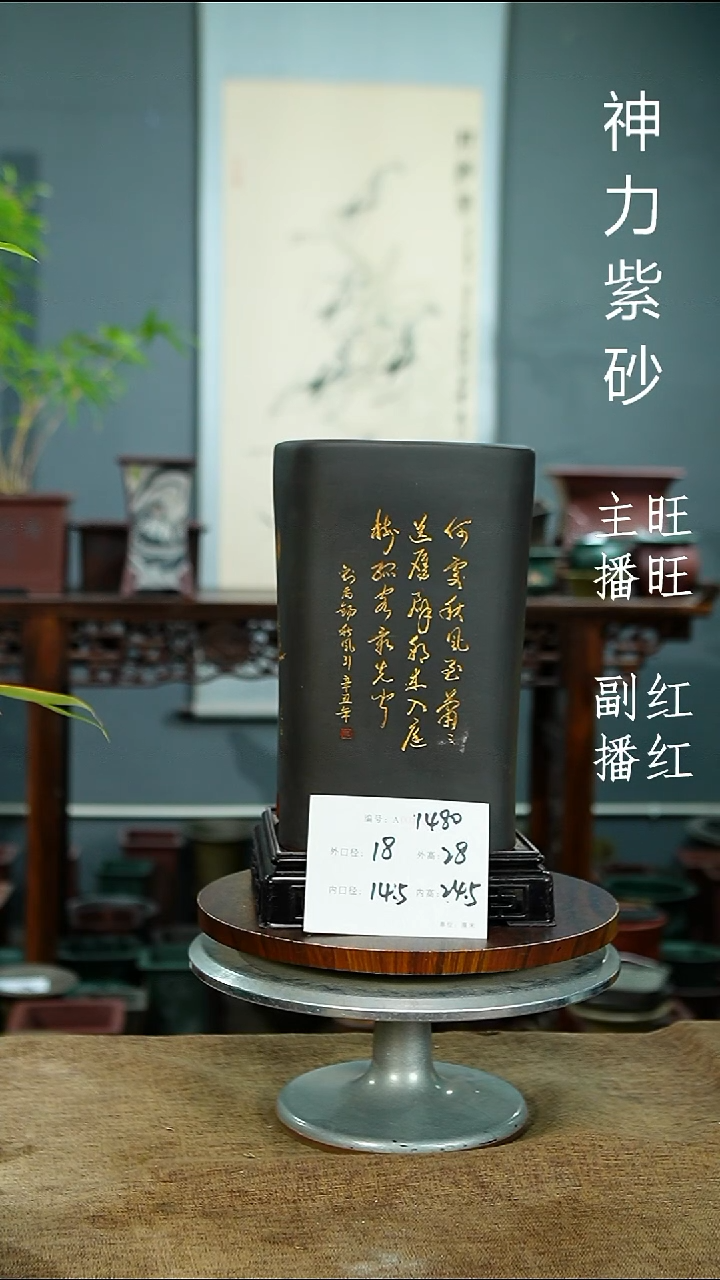 神力紫砂
主播
旺旺
副播
红红
何處秋风至蕭〻
送雁群朝来入庭
樹孤客最先聞
劉禹錫秋风引辛丑年
编号：A 1480
外口径：18 外高：28
内口径：14.5 内高：24.5
单位：厘米